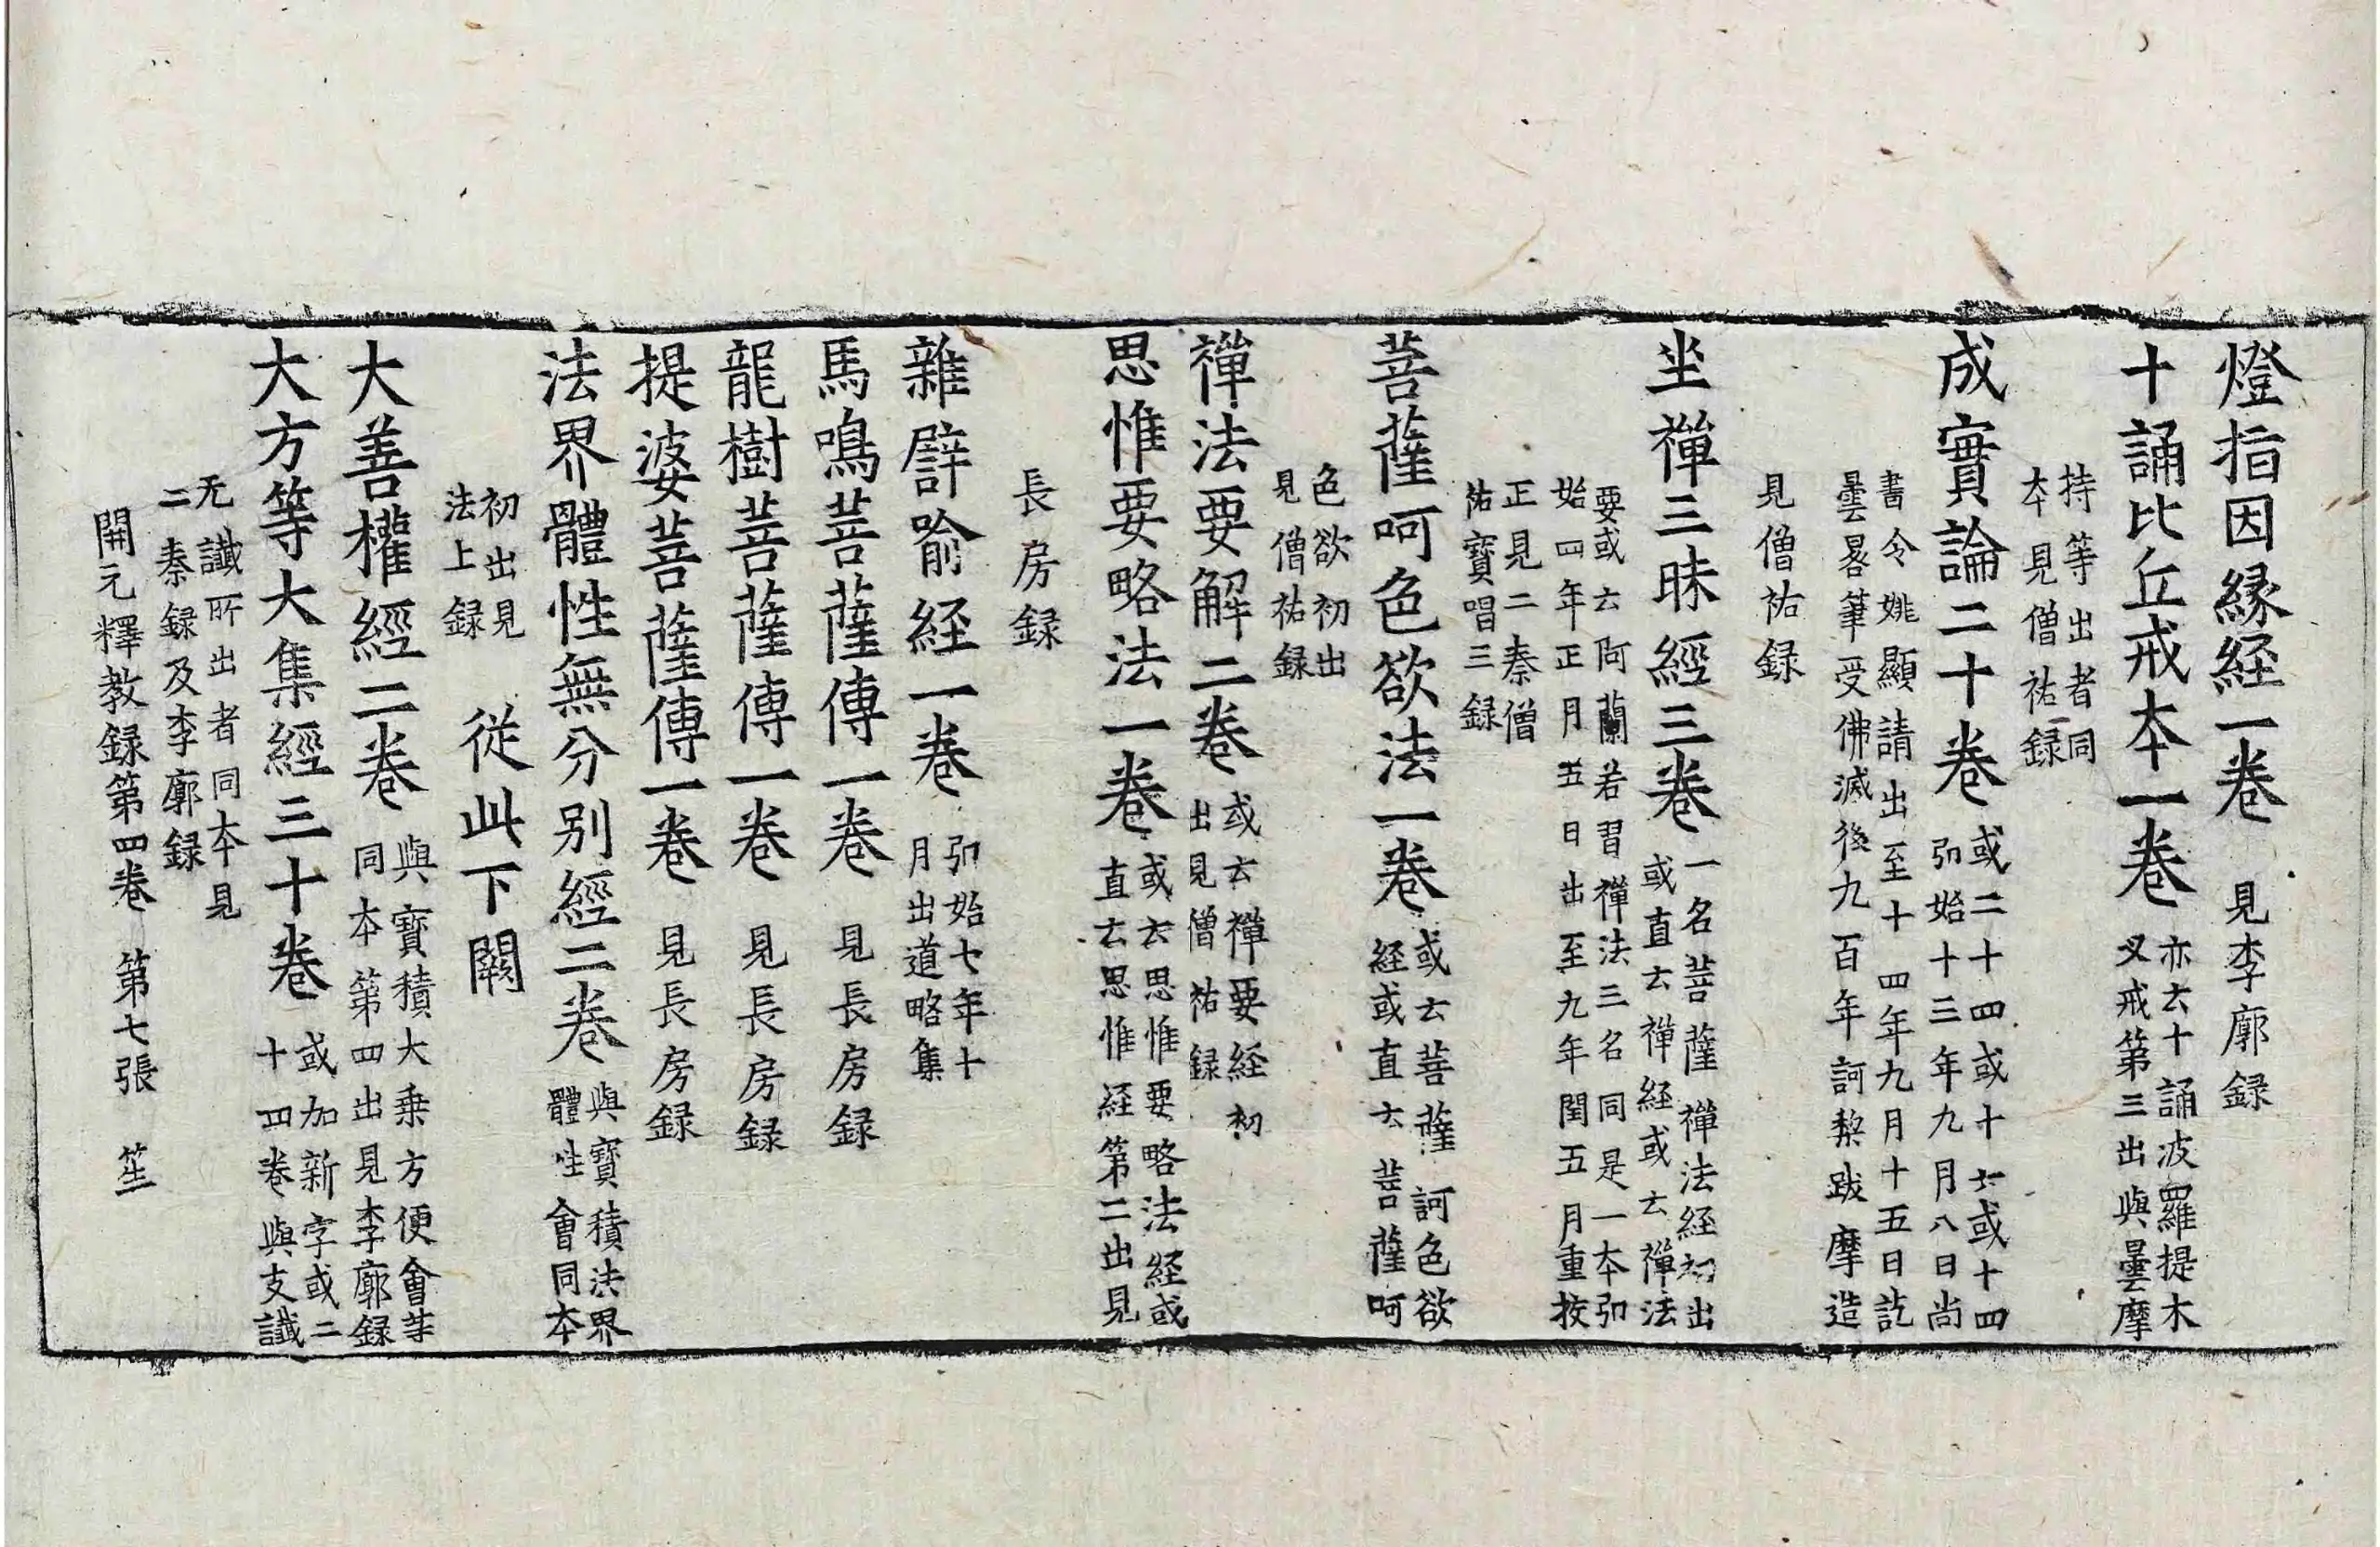 燈指因緣経一卷 見李廓録
十誦比丘戒夲一卷 亦云十誦波羅提木
叉戒第三出與曇摩
持等出者同
夲見僧祐録
成實論二十卷 或二十四或十六或十四
弘始十三年九月八日尚
書令姚顯請出至十四年九月十五日訖
曇晷筆受佛滅後九百年訶棃跋摩造
見僧祐録
坐禪三昧經三卷 一名菩薩禪法經初出
或直云禪経或云禪法
要或云阿蘭若習禪法三名同是一夲弘
始四年正月五日出至九年閏五月重挍
正見二秦僧
祐寶唱三録
菩薩呵色欲法一卷 或云菩薩訶色欲
経或直云菩薩呵
色欲初出
見僧祐録
禪法要解二卷 或云禪要経初
出見僧祐録
思惟要略法一卷 或云思惟要略法経或
直云思惟経第二出見
長房録
雜譬喻経一卷 弘始七年十
月出道略集
馬鳴菩薩傳一卷 見長房録
龍樹菩薩傳一卷 見長房録
提婆菩薩傳一卷 見長房録
法界體性無分別經二卷 與寶積法界
體性會同夲
初出見
法上録 從此下闕
大善權經二卷 與寶積大乗方便會等
同夲第四出見李廓録
大方等大集經三十卷 或加新字或二
十四卷與支讖
无讖所出者同夲見
二秦録及李廓録
開元釋教録第四卷 第七張 笙